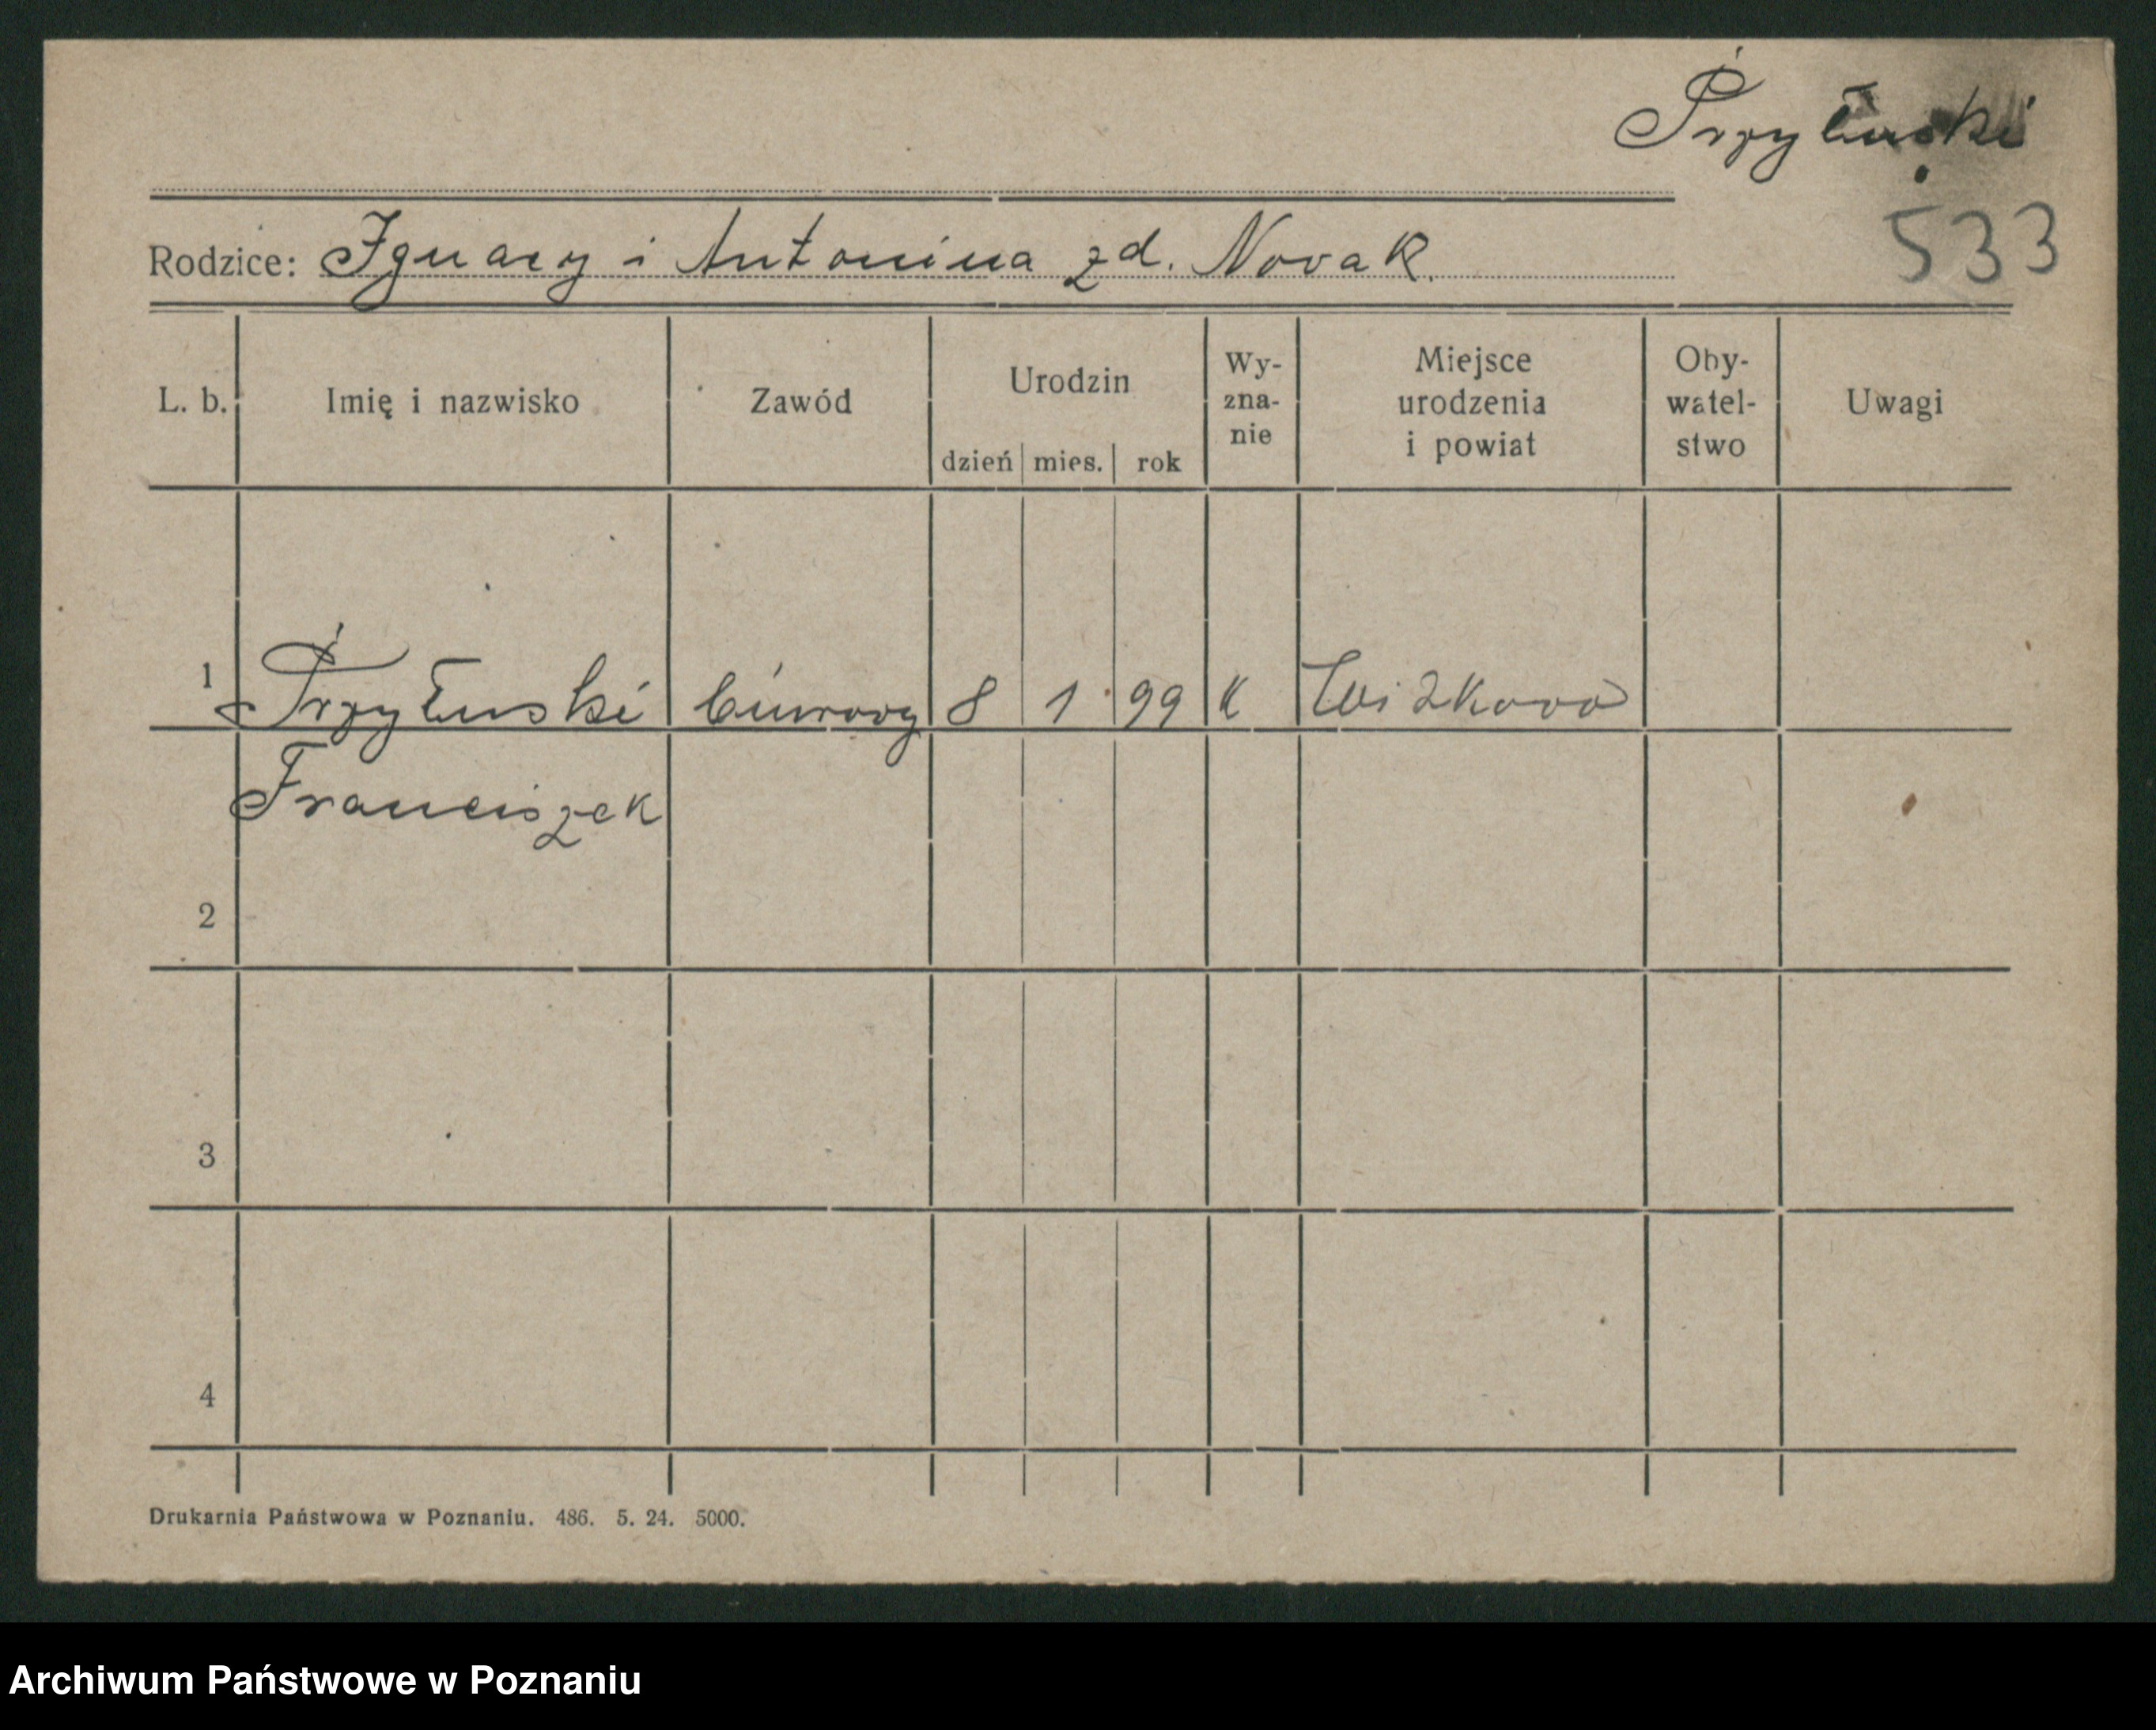 Przyłuski
533
Rodzice: Ignacy i Antonina zd. Novak.
L. b. Imię i nazwisko Zawód Urodzin dzień mies. rok Wy-zna-nie Miejsce urodzenia i powiat Oby-watel-stwo Uwagi
1 Przyłuski biurowy 8 1 99 K
Franciszek
2
3
4
Drukarnia Państwowa w Poznaniu. 486. 5. 24. 5000.
Archiwum Państwowe w Poznaniu